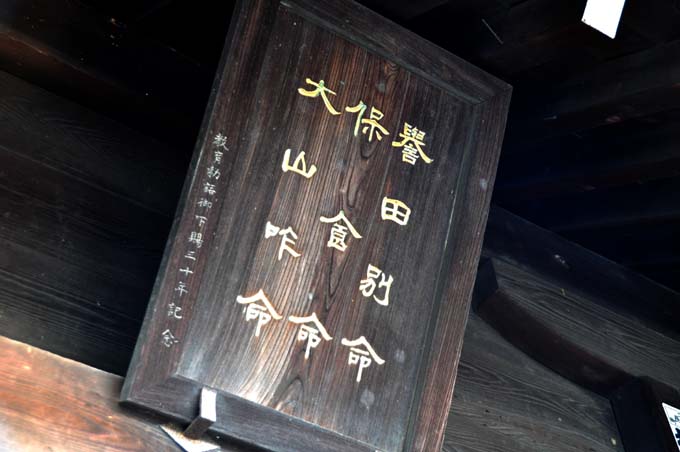 譽田別命
保食命
大山咋命
教育勅語御下賜三十年記念